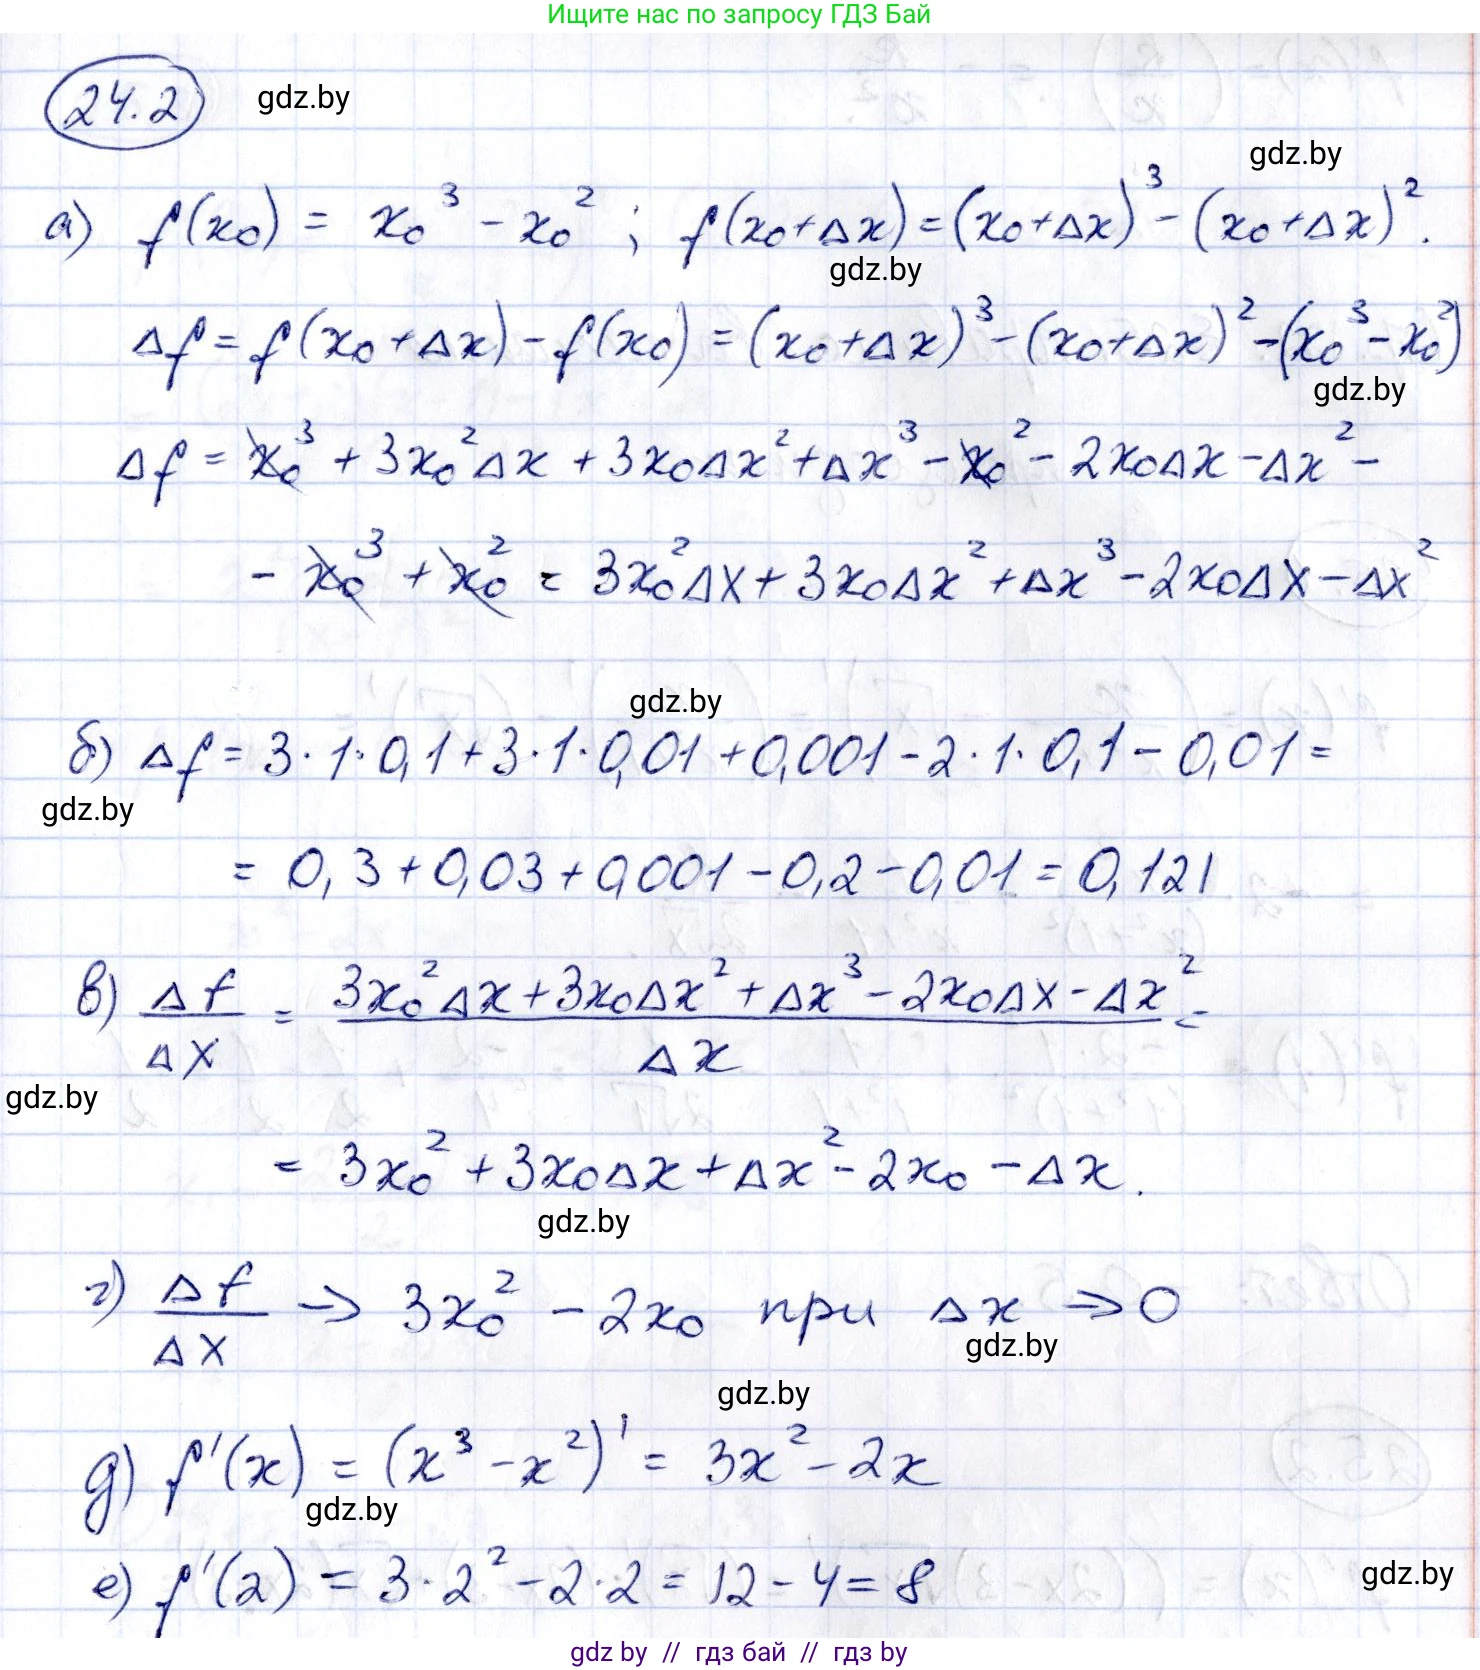 Ищите нас по запросу ГДЗ Бай
24.2 gdz.by
gdz.by
а) f(x₀) = x₀³ - x₀² ; f(x₀+Δx) = (x₀+Δx)³ - (x₀+Δx)².
gdz.by
Δf = f(x₀+Δx) - f(x₀) = (x₀+Δx)³ - (x₀+Δx)² - (x₀³ - x₀²)
gdz.by
Δf = x₀³ + 3x₀²Δx + 3x₀Δx² + Δx³ - x₀² - 2x₀Δx - Δx² -
- x₀³ + x₀² = 3x₀²Δx + 3x₀Δx² + Δx³ - 2x₀Δx - Δx²
gdz.by
б) Δf = 3·1·0,1 + 3·1·0,01 + 0,001 - 2·1·0,1 - 0,01 =
gdz.by
= 0,3 + 0,03 + 0,001 - 0,2 - 0,01 = 0,121
в) Δf/Δx = (3x₀²Δx + 3x₀Δx² + Δx³ - 2x₀Δx - Δx²)/Δx =
gdz.by
= 3x₀² + 3x₀Δx + Δx² - 2x₀ - Δx.
gdz.by
г) Δf/Δx → 3x₀² - 2x₀ при Δx → 0
gdz.by
gdz.by
д) f'(x) = (x³ - x²)' = 3x² - 2x
gdz.by
е) f'(2) = 3·2² - 2·2 = 12 - 4 = 8
gdz.by
gdz by // гдз бай // гдз by